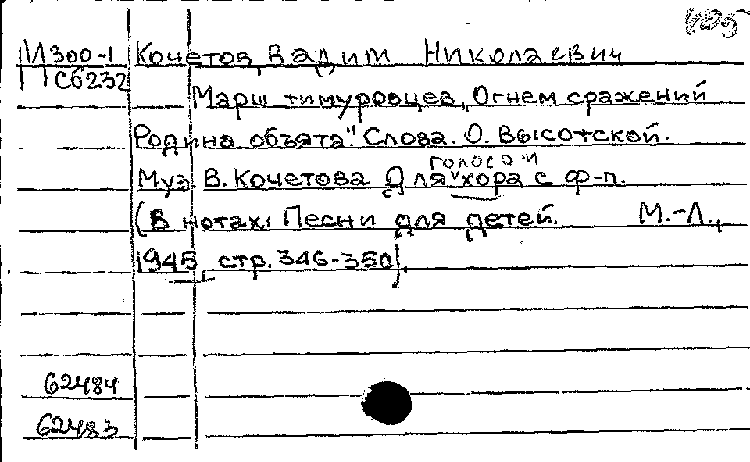 И300-1 Кочетов, Вадим Николаевич
С6232
Марш тимуровцев „Огнем сражений
Родина объята". Слова О. Высотской.
голоса и
Муз. В. Кочетова Для хора с ф-п.
(В нотах: Песни для детей. М.-Л.,
1945, стр. 346-350).
62484
62483